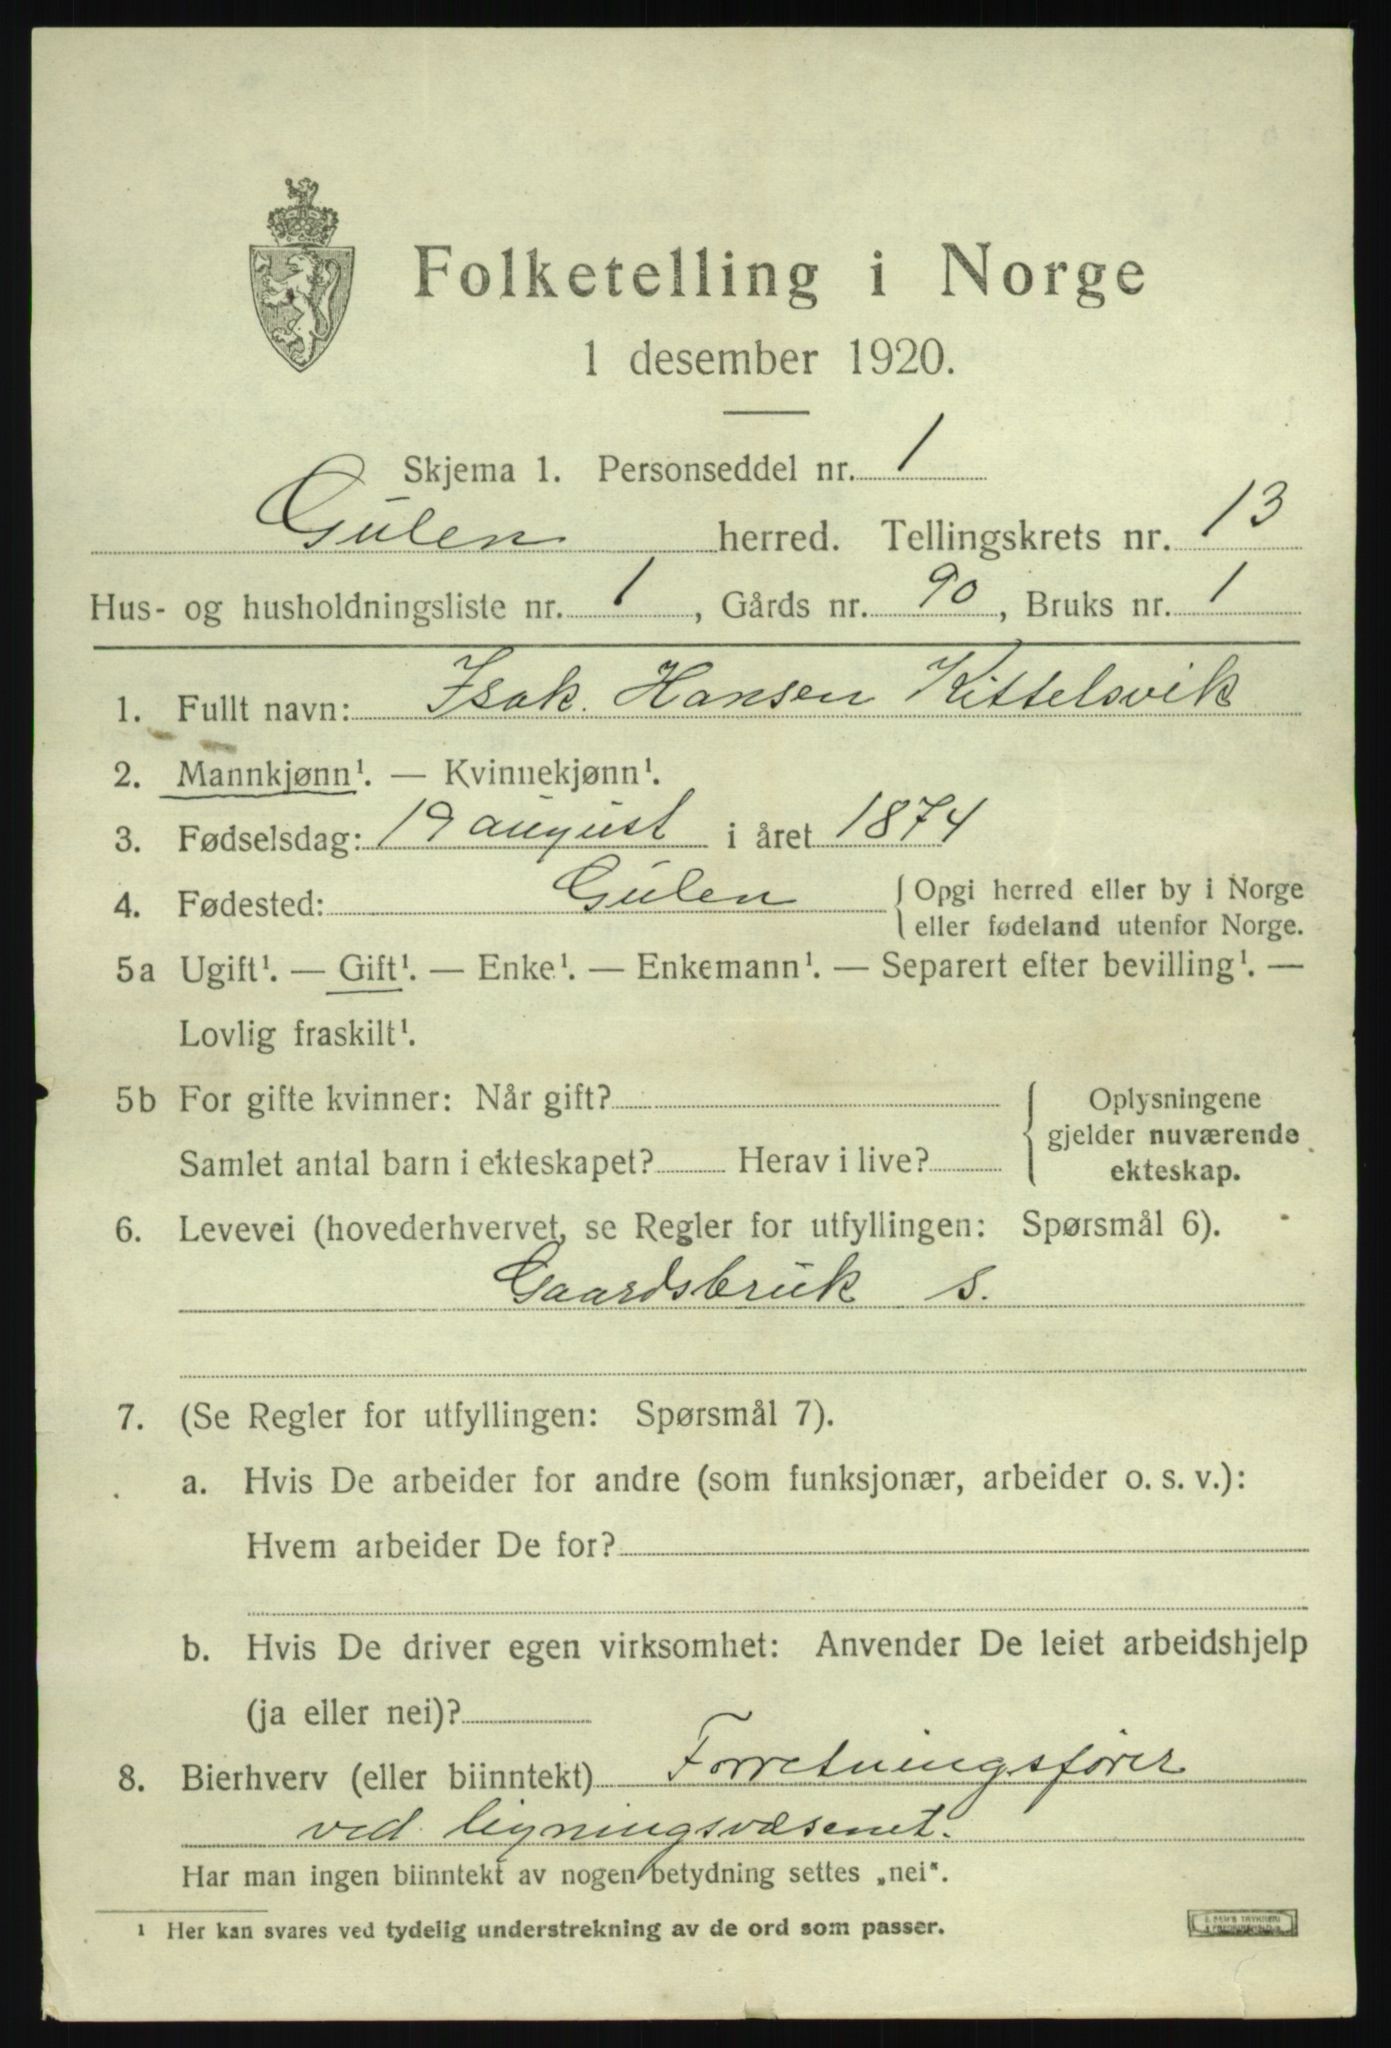 Folketelling i Norge
1 desember 1920.
Skjema 1. Personseddel nr. 1
Gulen herred. Tellingskrets nr. 13
Hus- og husholdningsliste nr. 1, Gårds nr. 90, Bruks nr. 1
1. Fullt navn: Isak Hansen Kittelsvik
2. Mannkjønn¹. — Kvinnekjønn¹.
3. Fødselsdag: 19 august i året 1874
4. Fødested: Gulen { Opgi herred eller by i Norge
eller fødeland utenfor Norge.
5a Ugift¹. — Gift¹. — Enke¹. — Enkemann¹. — Separert efter bevilling¹. —
Lovlig fraskilt¹.
5b For gifte kvinner: Når gift? { Oplysningene
gjelder nuværende
Samlet antal barn i ekteskapet? Herav i live? ekteskap.
6. Levevei (hovederhvervet, se Regler for utfyllingen: Spørsmål 6).
Gaardsbruk s.
7. (Se Regler for utfyllingen: Spørsmål 7).
a. Hvis De arbeider for andre (som funksjonær, arbeider o. s. v.):
Hvem arbeider De for?
b. Hvis De driver egen virksomhet: Anvender De leiet arbeidshjelp
(ja eller nei)?
8. Bierhverv (eller biinntekt) Forretningsfører
ved ligningsvæsenet.
Har man ingen biinntekt av nogen betydning settes „nei“.
¹ Her kan svares ved tydelig understrekning av de ord som passer.